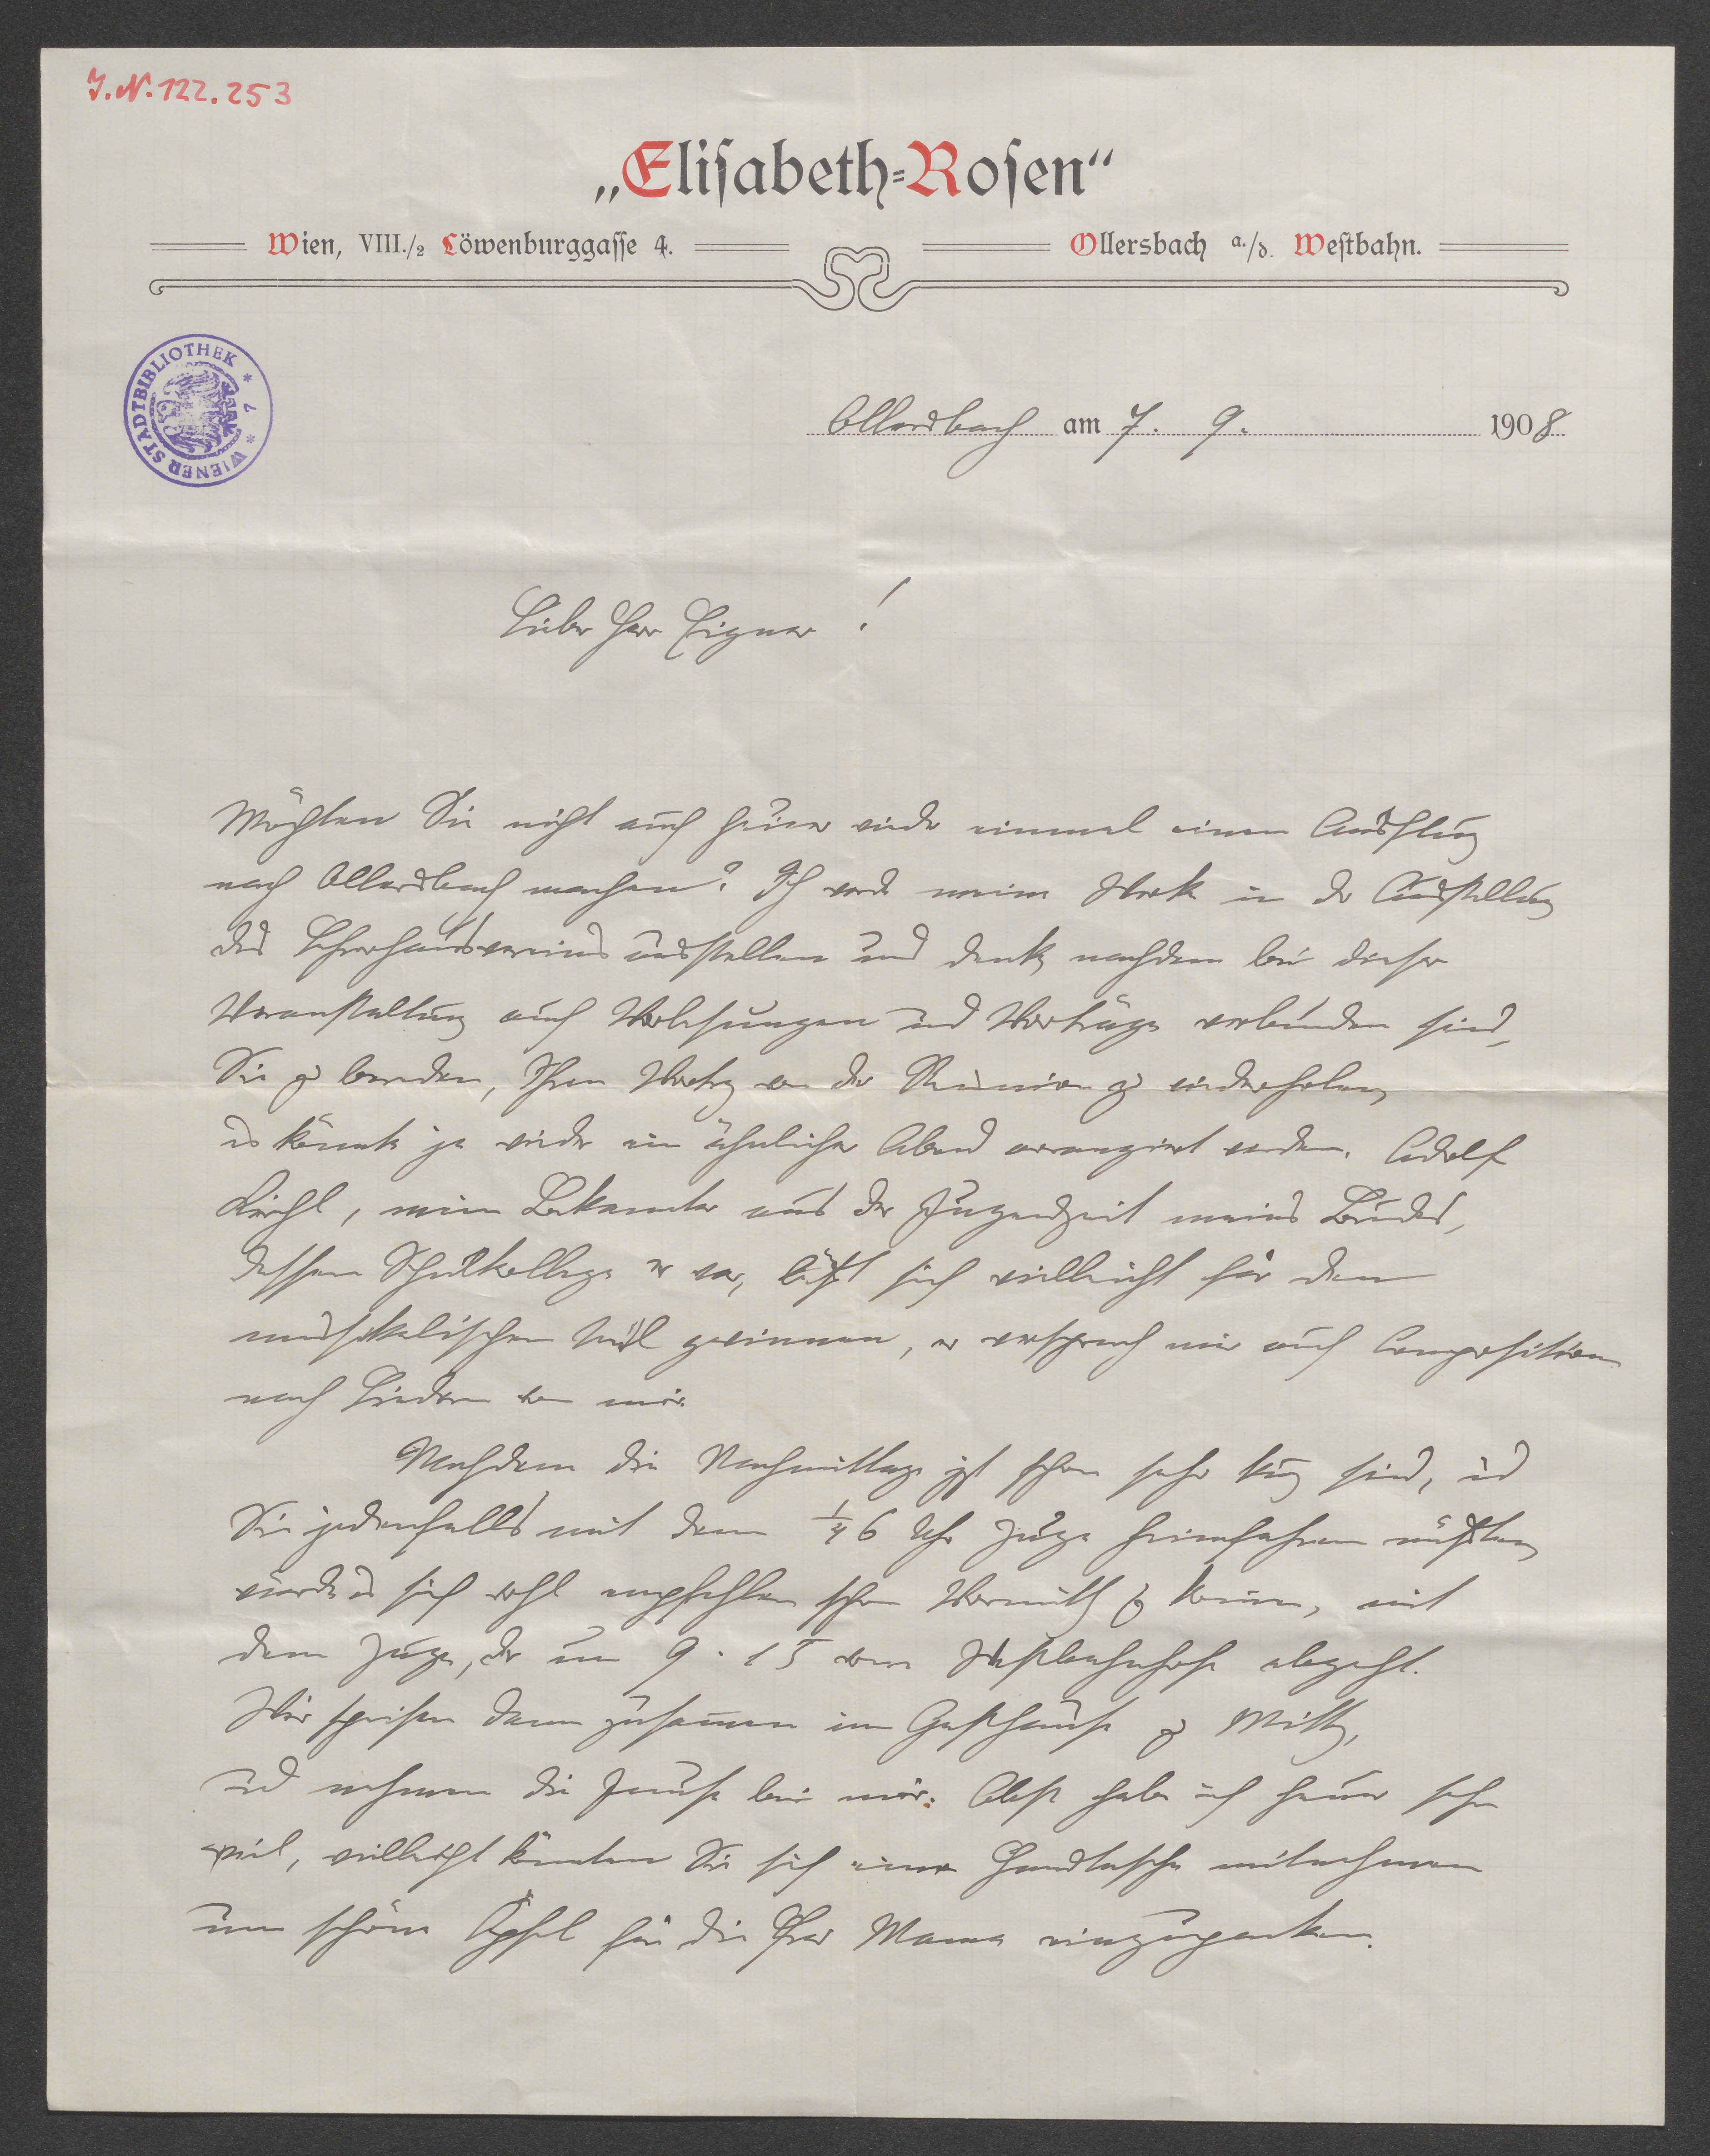 J.N. 122.253
„Eliſabeth=Roſen“
Wien, VIII./2 Löwenburggaſſe 4.
Ollersbach a./d. Weſtbahn.
WIENER STADTBIBLIOTHEK * 7 *
Ollersbach am 7. 9. 1908
Lieber Herr Eigner!
Möchten Sie nicht auch heuer wieder einmal einen Ausflug
nach Ollersbach machen? Ich werde meine Werke in der Ausstellung
des Lehrerhausvereins ausstellen und denke nachdem bei dieser
Veranstaltung auch Vorlesungen und Vorträge verbunden sind,
Sie zu bereden, Ihren Vortrag von der Reunion zu wiederholen,
es könnte ja wieder ein ähnlicher Abend arrangirt werden. Adolf
Kirchl, mein Bekannter aus der Jugendzeit meines Bruders,
dessen Schulkollege er war, läßt sich vielleicht für den
musikalischen Teil gewinnen, er versprach mir auch Composition
nach Liedern von mir.
Nachdem die Nachmittage jetzt schon sehr kurz sind, und
Sie jedenfalls mit dem 1/4 6 Uhr Zuge heimfahren müßten,
würde es sich wohl empfehlen schon Vormittag zu kommen, mit
dem Zuge, der um 9.15 vom Westbahnhofe abgeht.
Wir speisen dann zusammen im Gasthause zu Mittag,
und nehmen die Jause bei mir. Obst habe ich heuer sehr
viel, vielleicht könnten Sie sich eine Handtasche mitnehmen
um schöne Äpfel für die Frau Mama einzupacken.